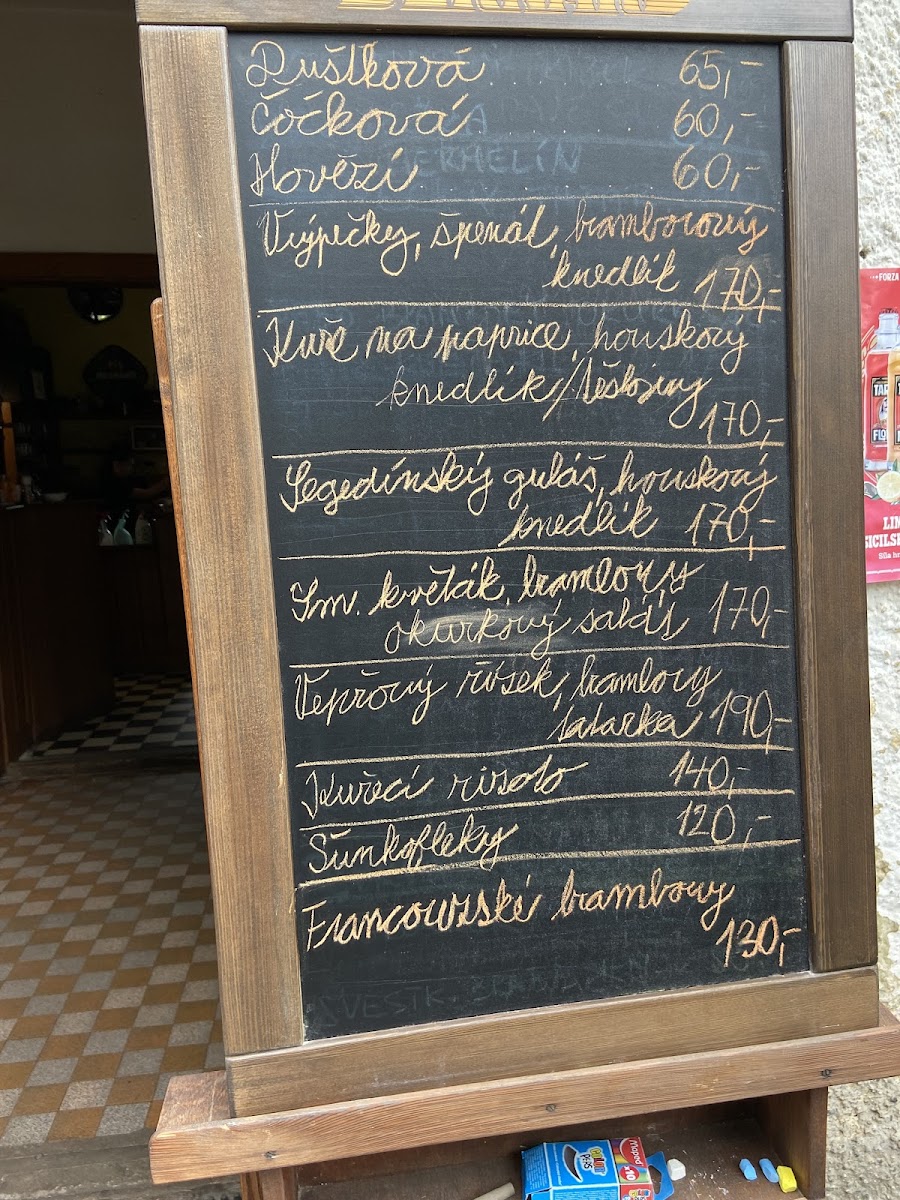 Dušťková 65,-
Čočková 60,-
Hovězí 60,-
Vrýpečky, špenát, bramborový
knedlík 170,-
Kuře na paprice, houskový
knedlík/těstoviny
170,-
Segedínský guláš, houskový
knedlík 170,-
Sm. květák, brambory
okurkový salát 170,-
Vepřový řízek, brambory
tatarka 190,-
Kuřecí rizoto 140,-
Šunkofleky 120,-
Francouzské brambory
130,-
FORZA
Maped